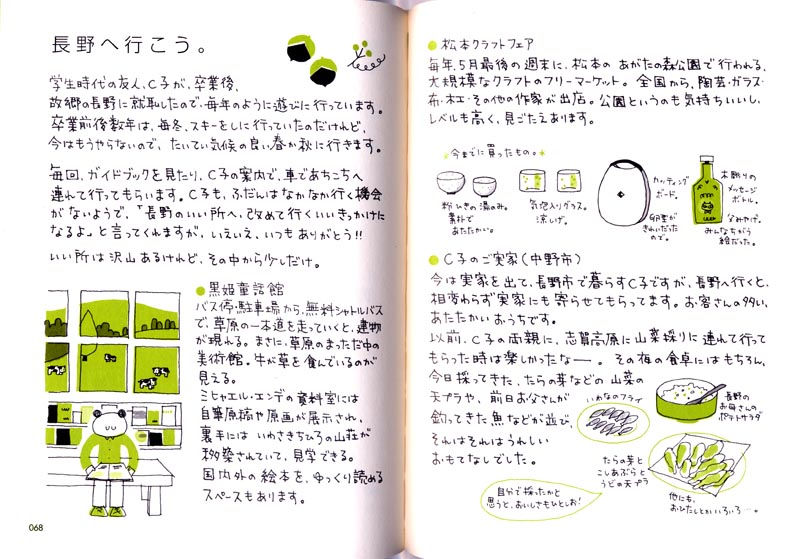 長野へ行こう。
学生時代の友人、C子が、卒業後、
故郷の長野に就職したので、毎年のように遊びに行っています。
卒業前後数年は、毎冬、スキーをしに行っていたのだけれど、
今はもうやらないので、たいてい気候の良い春か秋に行きます。
毎回、ガイドブックを見たり、C子の案内で、車であちこちへ
連れて行ってもらいます。C子も、ふだんはなかなか行く機会
がないようで、「長野のいい所へ、改めて行くいいきっかけに
なるよ」と言ってくれますが、いえいえ、いつもありがとう!!
いい所は沢山あるけれど、その中から少しだけ。
黒姫童話館
バス停・駐車場から、無料シャトルバス
で、草原の一本道を走っていくと、建物
が現れる。まさに、草原のまっただ中の
美術館。牛が草を食んでいるのが
見える。
ミヒャエル・エンデの資料室には
自筆原稿や原画が展示され、
裏手には いわさきちひろの山荘が
移築されていて、見学できる。
国内外の絵本を、ゆっくり読める
スペースもあります。
068
松本クラフトフェア
毎年、5月最後の週末に、松本の あがたの森公園で行われる、
大規模なクラフトのフリーマーケット。全国から、陶芸・ガラス・
布・木工・その他の作家が出店。公園というのも気持ちいいし、
レベルも高く、見ごたえあります。
今までに買ったもの。
粉ひきの湯のみ。
素朴で
あたたかい。
気泡入りグラス。
涼しげ。
カッティング
ボード。
卵型が
きれいだった
ので。
木彫りの
メッセージ
ボトル。
おみやげ。
みんなちがう
絵だった。
C子のご実家(中野市)
今は実家を出て、長野市で暮らすC子ですが、長野へ行くと、
相変わらず実家にも寄らせてもらってます。お客さんの多い、
あたたかいおうちです。
以前、C子の両親に、志賀高原に山菜採りに連れて行って
もらった時は楽しかったなー。その晩の食卓にはもちろん、
今日採ってきた、たらの芽などの山菜の
天プラや、前日お父さんが
釣ってきた魚などが並び、
それはそれはうれしい
おもてなしでした。
いわなのフライ
長野の
お母さんの
ポテトサラダ
たらの芽と
こしあぶらと
うどの天プラ
他にも、
おひたしとかいろいろ…。
自分で採ったかと
思うと、おいしさもひとしお!